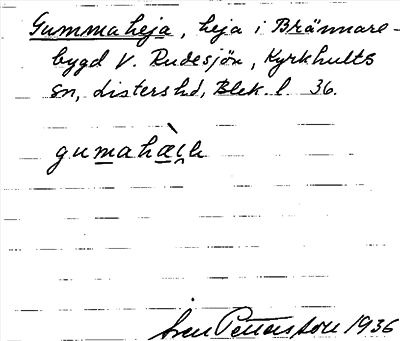 Gummaheja, heja i Brännare-
bygd V. Rudesjön, Kyrkhults
sn, Listers hd, Blek. l. 36.
Sven Pettersson 1936